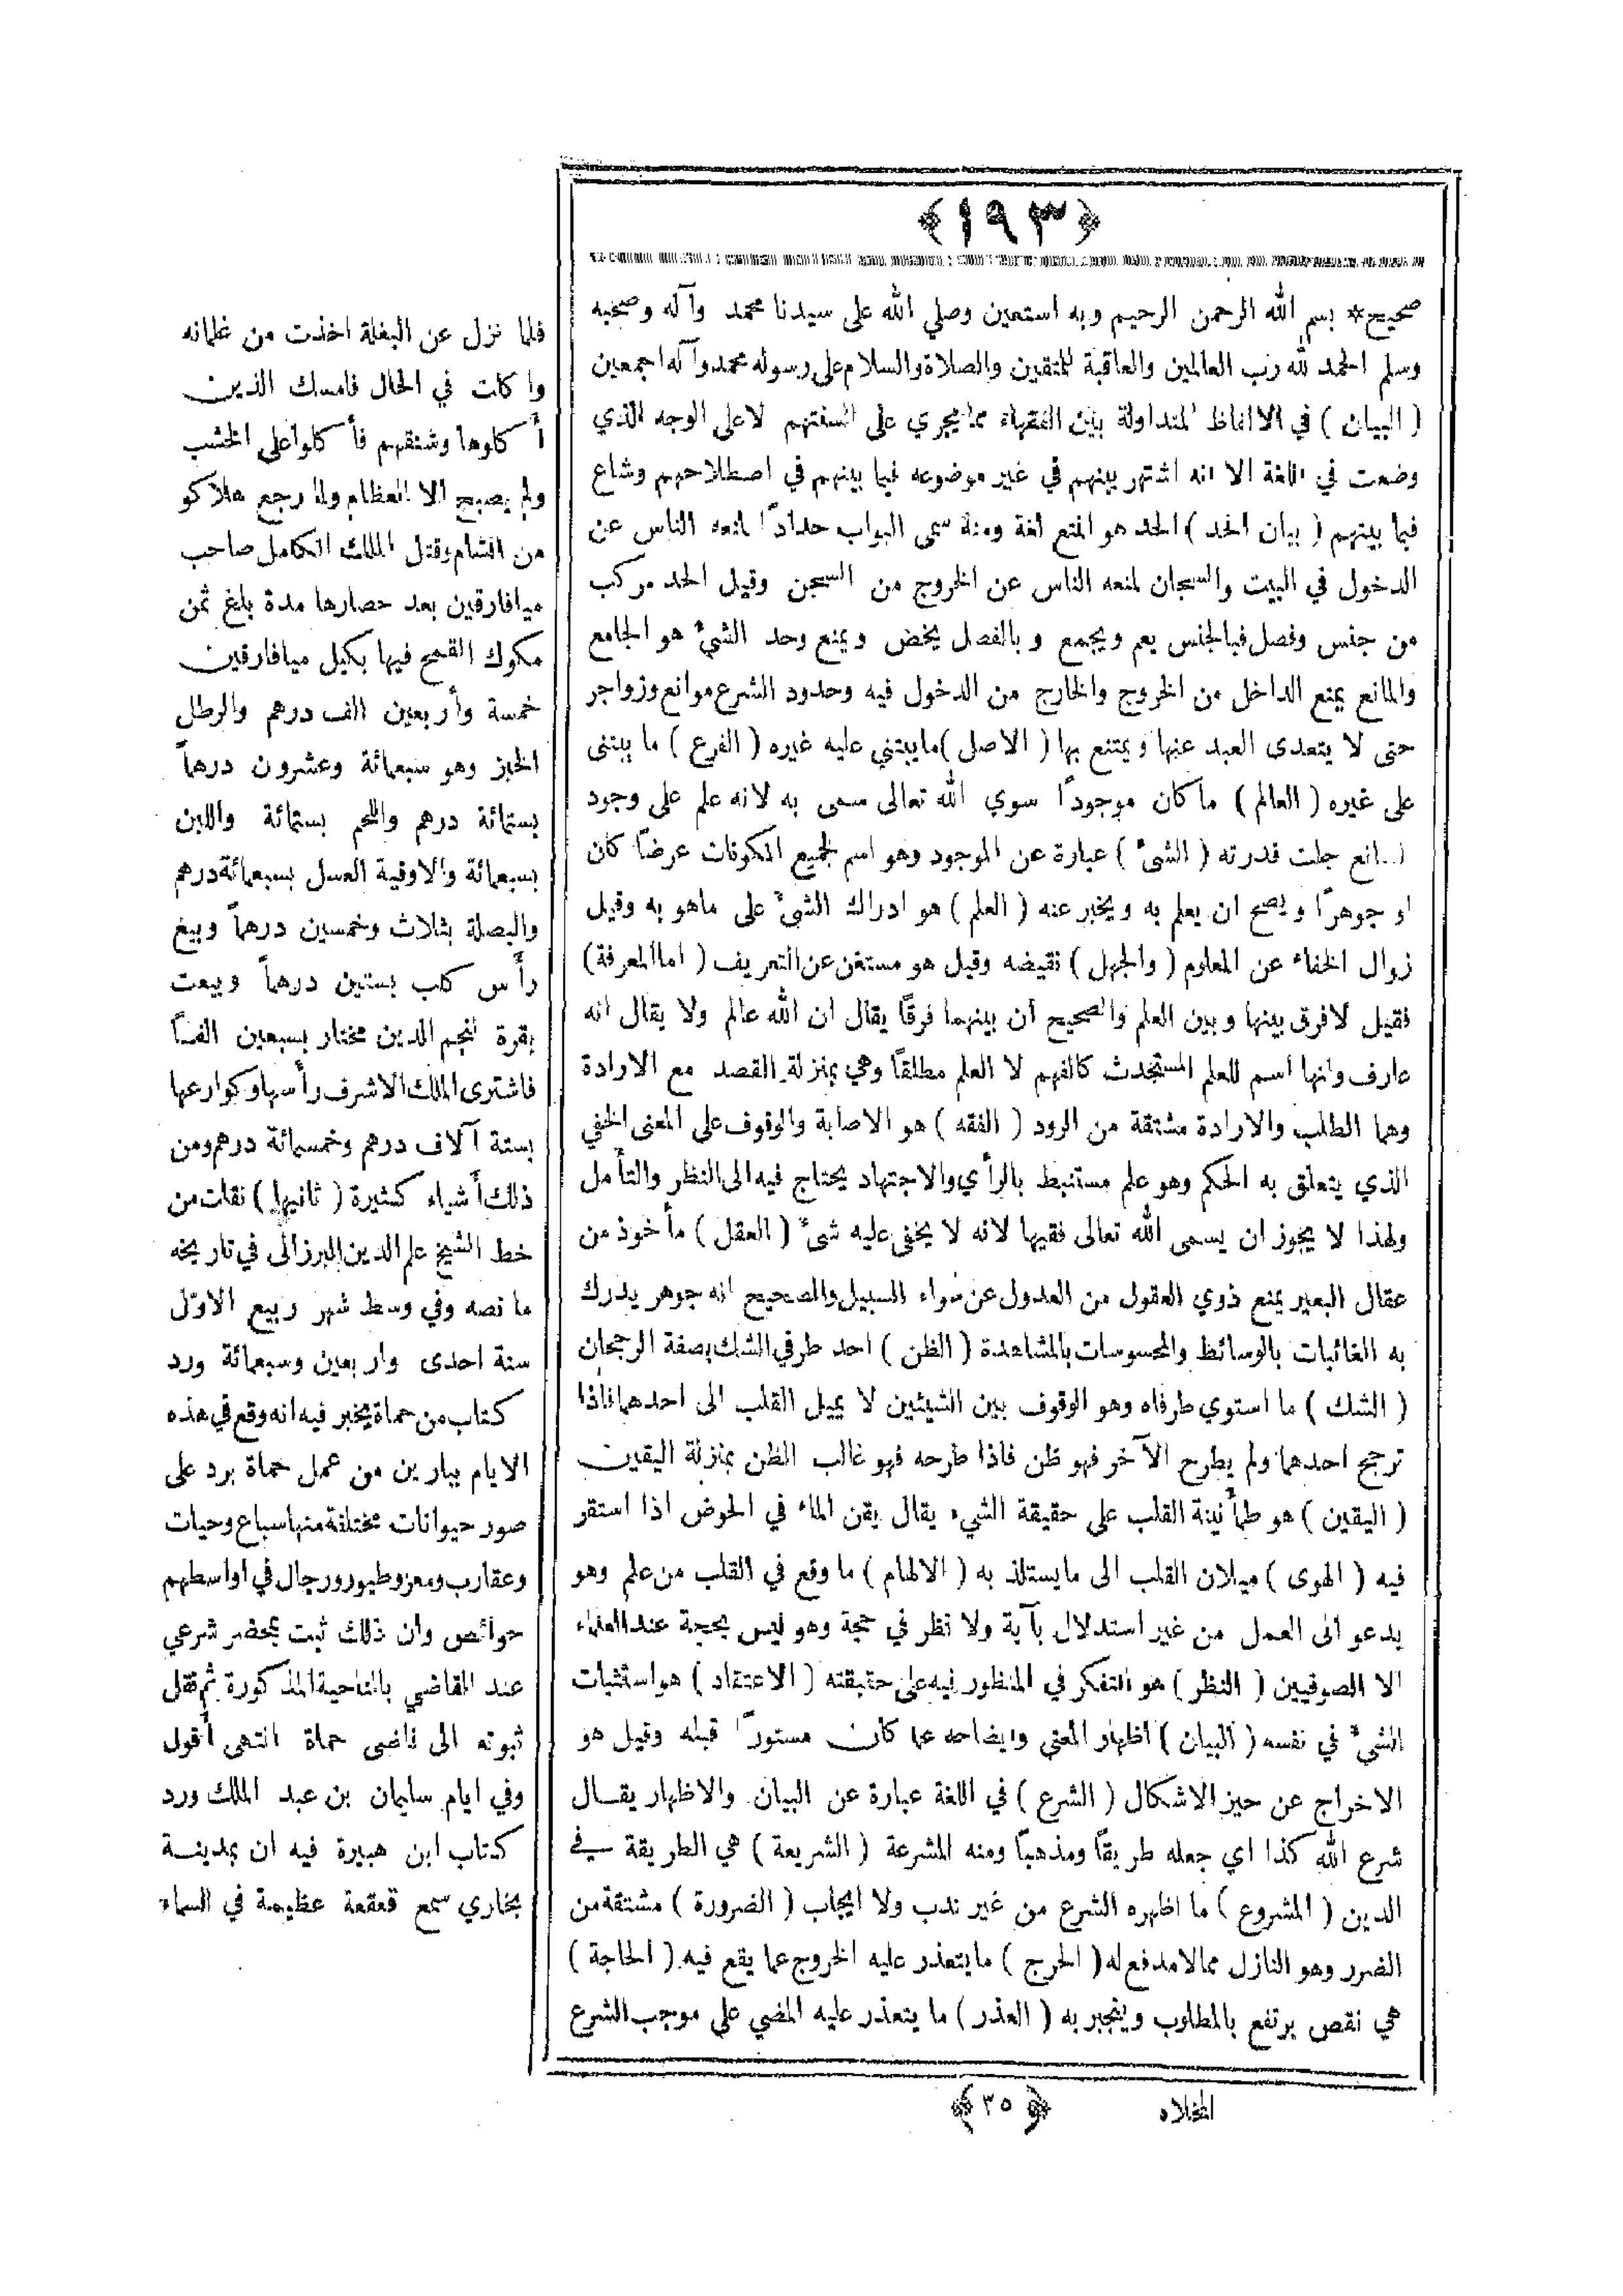 ﴿١٩٣﴾
صحيح * بسم الله الرحمن الرحيم وبه استعين وصلي الله على سيدنا محمد وآله وصحبه
وسلم الحمد لله رب العالمين والعاقبة للمتقين والصلاة والسلام على رسوله محمد وآله اجمعين
( البيان ) في الالفاظ المتداولة بين الفقهاء مما يجري على السنتهم لا على الوجه الذي
وضعت في اللغة الا انه اشتهر بينهم في غير موضوعه فيما بينهم في اصطلاحهم وشاع
فيما بينهم ( بيان الحد ) الحد هو المنع لغة ومنه سمى البواب حدادًا لمنعه الناس عن
الدخول في البيت والسجان لمنعه الناس عن الخروج من السجن وقيل الحد مركب
من جنس وفصل فبالجنس يعم ويجمع وبالفصل يخض ويمنع وحد الشئ هو الجامع
والمانع يمنع الداخل من الخروج والخارج من الدخول فيه وحدود الشرع موانع وزواجر
حتى لا يتعدى العبد عنها ويمتنع بها ( الاصل ) ما يبتني عليه غيره ( الفرع ) ما يبتنى
على غيره ( العالم ) ما كان موجودًا سوي الله تعالى سمى به لانه علم على وجود
الصانع جلت قدرته ( الشئ ) عبارة عن الموجود وهو اسم لجميع المكونات عرضًا كان
او جوهرًا ويصح ان يعلم به ويخبر عنه ( العلم ) هو ادراك الشئ على ماهو به وقيل
زوال الخفاء عن المعلوم ( والجهل ) نقيضه وقيل هو مستغن عن التعريف ( اما المعرفة )
فقيل لافرق بينها وبين العلم والصحيح أن بينهما فرقًا يقال ان الله عالم ولا يقال انه
عارف وانها اسم للعلم المستجدث كالفهم لا العلم مطلقًا وهي بمنزلة القصد مع الارادة
وهما الطلب والارادة مشتقة من الرود ( الفقه ) هو الاصابة والوقوف على المعنى الخفي
الذي يتعلق به الحكم وهو علم مستنبط بالرأي والاجتهاد يحتاج فيه الى النظر والتأمل
ولهذا لا يجوز ان يسمى الله تعالى فقيها لانه لا يخفى عليه شئ ( العقل ) مأخوذ من
عقال البعير يمنع ذوي العقول من العدول عن سواء السبيل والصحيح انه جوهر يدرك
به الغائبات بالوسائط والمحسوسات بالمشاهدة ( الظن ) احد طرفي الشك بصفة الرجحان
( الشك ) ما استوي طرفاه وهو الوقوف بين الشيئين لا يميل القلب الى احدهما فاذا
ترجح احدهما ولم يطرح الآخر فهو ظن فاذا طرحه فهو غالب الظن بمنزلة اليقين
( اليقين ) هو طمأنينة القلب على حقيقة الشيء يقال يقن الماء في الحوض اذا استقر
فيه ( الهوى ) ميلان القلب الى مايستلذ به ( الالهام ) ما وقع في القلب من علم وهو
يدعو الى العمل من غير استدلال بآية ولا نظر في حجة وهو ليس بحجة عند العلماء
الا الصوفيين ( النظر ) هو التفكر في المنظور فيه على حقيقته ( الاعتقاد ) هو استثبات
الشئ في نفسه ( البيان ) اظهار المعنى وايضاحه عما كان مستورًا قبله وقيل هو
الاخراج عن حيز الاشكال ( الشرع ) في اللغة عبارة عن البيان والاظهار يقال
شرع الله كذا اي جعله طريقًا ومذهبًا ومنه المشرعة ( الشريعة ) هي الطريقة في
الدين ( المشروع ) ما اظهره الشرع من غير ندب ولا ايجاب ( الضرورة ) مشتقة من
الضرر وهو النازل مما لامدفع له ( الحرج ) ما يتعذر عليه الخروج عما يقع فيه ( الحاجة )
هي نقص يرتفع بالمطلوب وينجبر به ( العذر ) ما يتعذر عليه المضي على موجب الشرع
فلما نزل عن البغلة اخذت من غلمانه
واكلت في الحال فامسك الذين
أكلوها وشنقهم فأكلوا على الخشب
ولم يصبح الا العظام ولما رجع هلاكو
من الشام وقتل الملك الكامل صاحب
ميافارقين بعد حصارها مدة بلغ ثمن
مكوك القمح فيها بكيل ميافارقين
خمسة وأربعين الف درهم والرطل
الخبز وهو سبعمائة وعشرون درهمًا
بستمائة درهم واللحم بستمائة واللبن
بسبعمائة والاوقية العسل بسبعمائة درهم
والبصلة بثلاث وخمسين درهمًا وبيغ
رأس كلب بستين درهمًا وبيعت
بقرة لنجم الدين مختار بسبعين الفًا
فاشترى الملك الاشرف رأسها وكوارعها
بستة آلاف درهم وخمسمائة درهم ومن
ذلك أشياء كثيرة ( ثانيها ) نقلت من
خط الشيخ علم الدين البرزالى في تاريخه
ما نصه وفي وسط شهر ربيع الاوّل
سنة احدى واربعين وسبعمائة ورد
كتاب من حماة يخبر فيه انه وقع في هذه
الايام ببارين من عمل حماة برد على
صور حيوانات مختلفة منها سباع وحيات
وعقارب ومعز وطيور ورجال في اواسطهم
حوائص وان ذلك ثبت بمحضر شرعي
عند القاضي بالناحية المذكورة ثم نقل
ثبوته الى قاضى حماة انتهى أقول
وفي ايام سليمان بن عبد الملك ورد
كتاب ابن هبيرة فيه ان بمدينة
بخاري سمع قعقعة عظيمة في السماء
المخلاه
﴿٣٥﴾